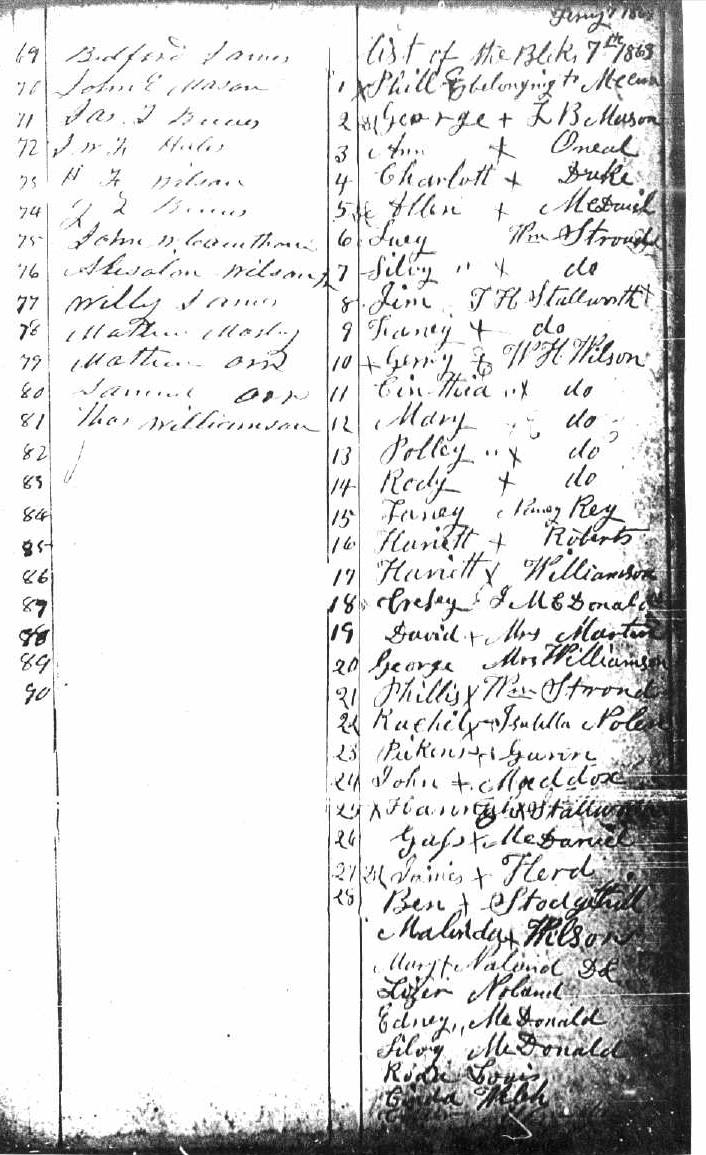 69 Bedford James
70 John E Mason
71 Jas. T
72 J W H
73 H F Wilson
74
75 John W Cawthorn
76 Absalon Wilson
77 Willy James
78 Mathew Mosly
79 Mathew Orr
80 Samuel Orr
81 Thos Williamson
82
83
84
85
86
87
88
89
90
List of the Blcks 7th 1863
1 x Phill belonging to
2 George + L B Mason
3 Ann x Oneal
4 Charlott x Duke
5 Allen x McDanil
6 Lucy Wm Stroud
7 Silvy " x do
8 Jim J H Stallworth
9 Faney x do
10 x Gerry W H Wilson
11 Cinthia " x do
12 Mary do
13 Polley " x do
14 Rody x do
15 Faney Nancy Rey
16 Hariett x Roberts
17 Hariett x Williamson
18 Cresey J McDonald
19 David x Mrs Martin
20 George Mrs Williamson
21 Phillis x Wm Stroud
22 Rachel x Isabella Nolen
23 Pickens x Gavin
24 John x Maddox
25 x Hannah x Stallworth
26 x McDaniel
27 James x Herd
28 Ben x Stodgithill
Malinda x Wilson
Mary x Noland
Lizer Noland
Edney " McDonald
Silvy McDonald
Louis
Welch